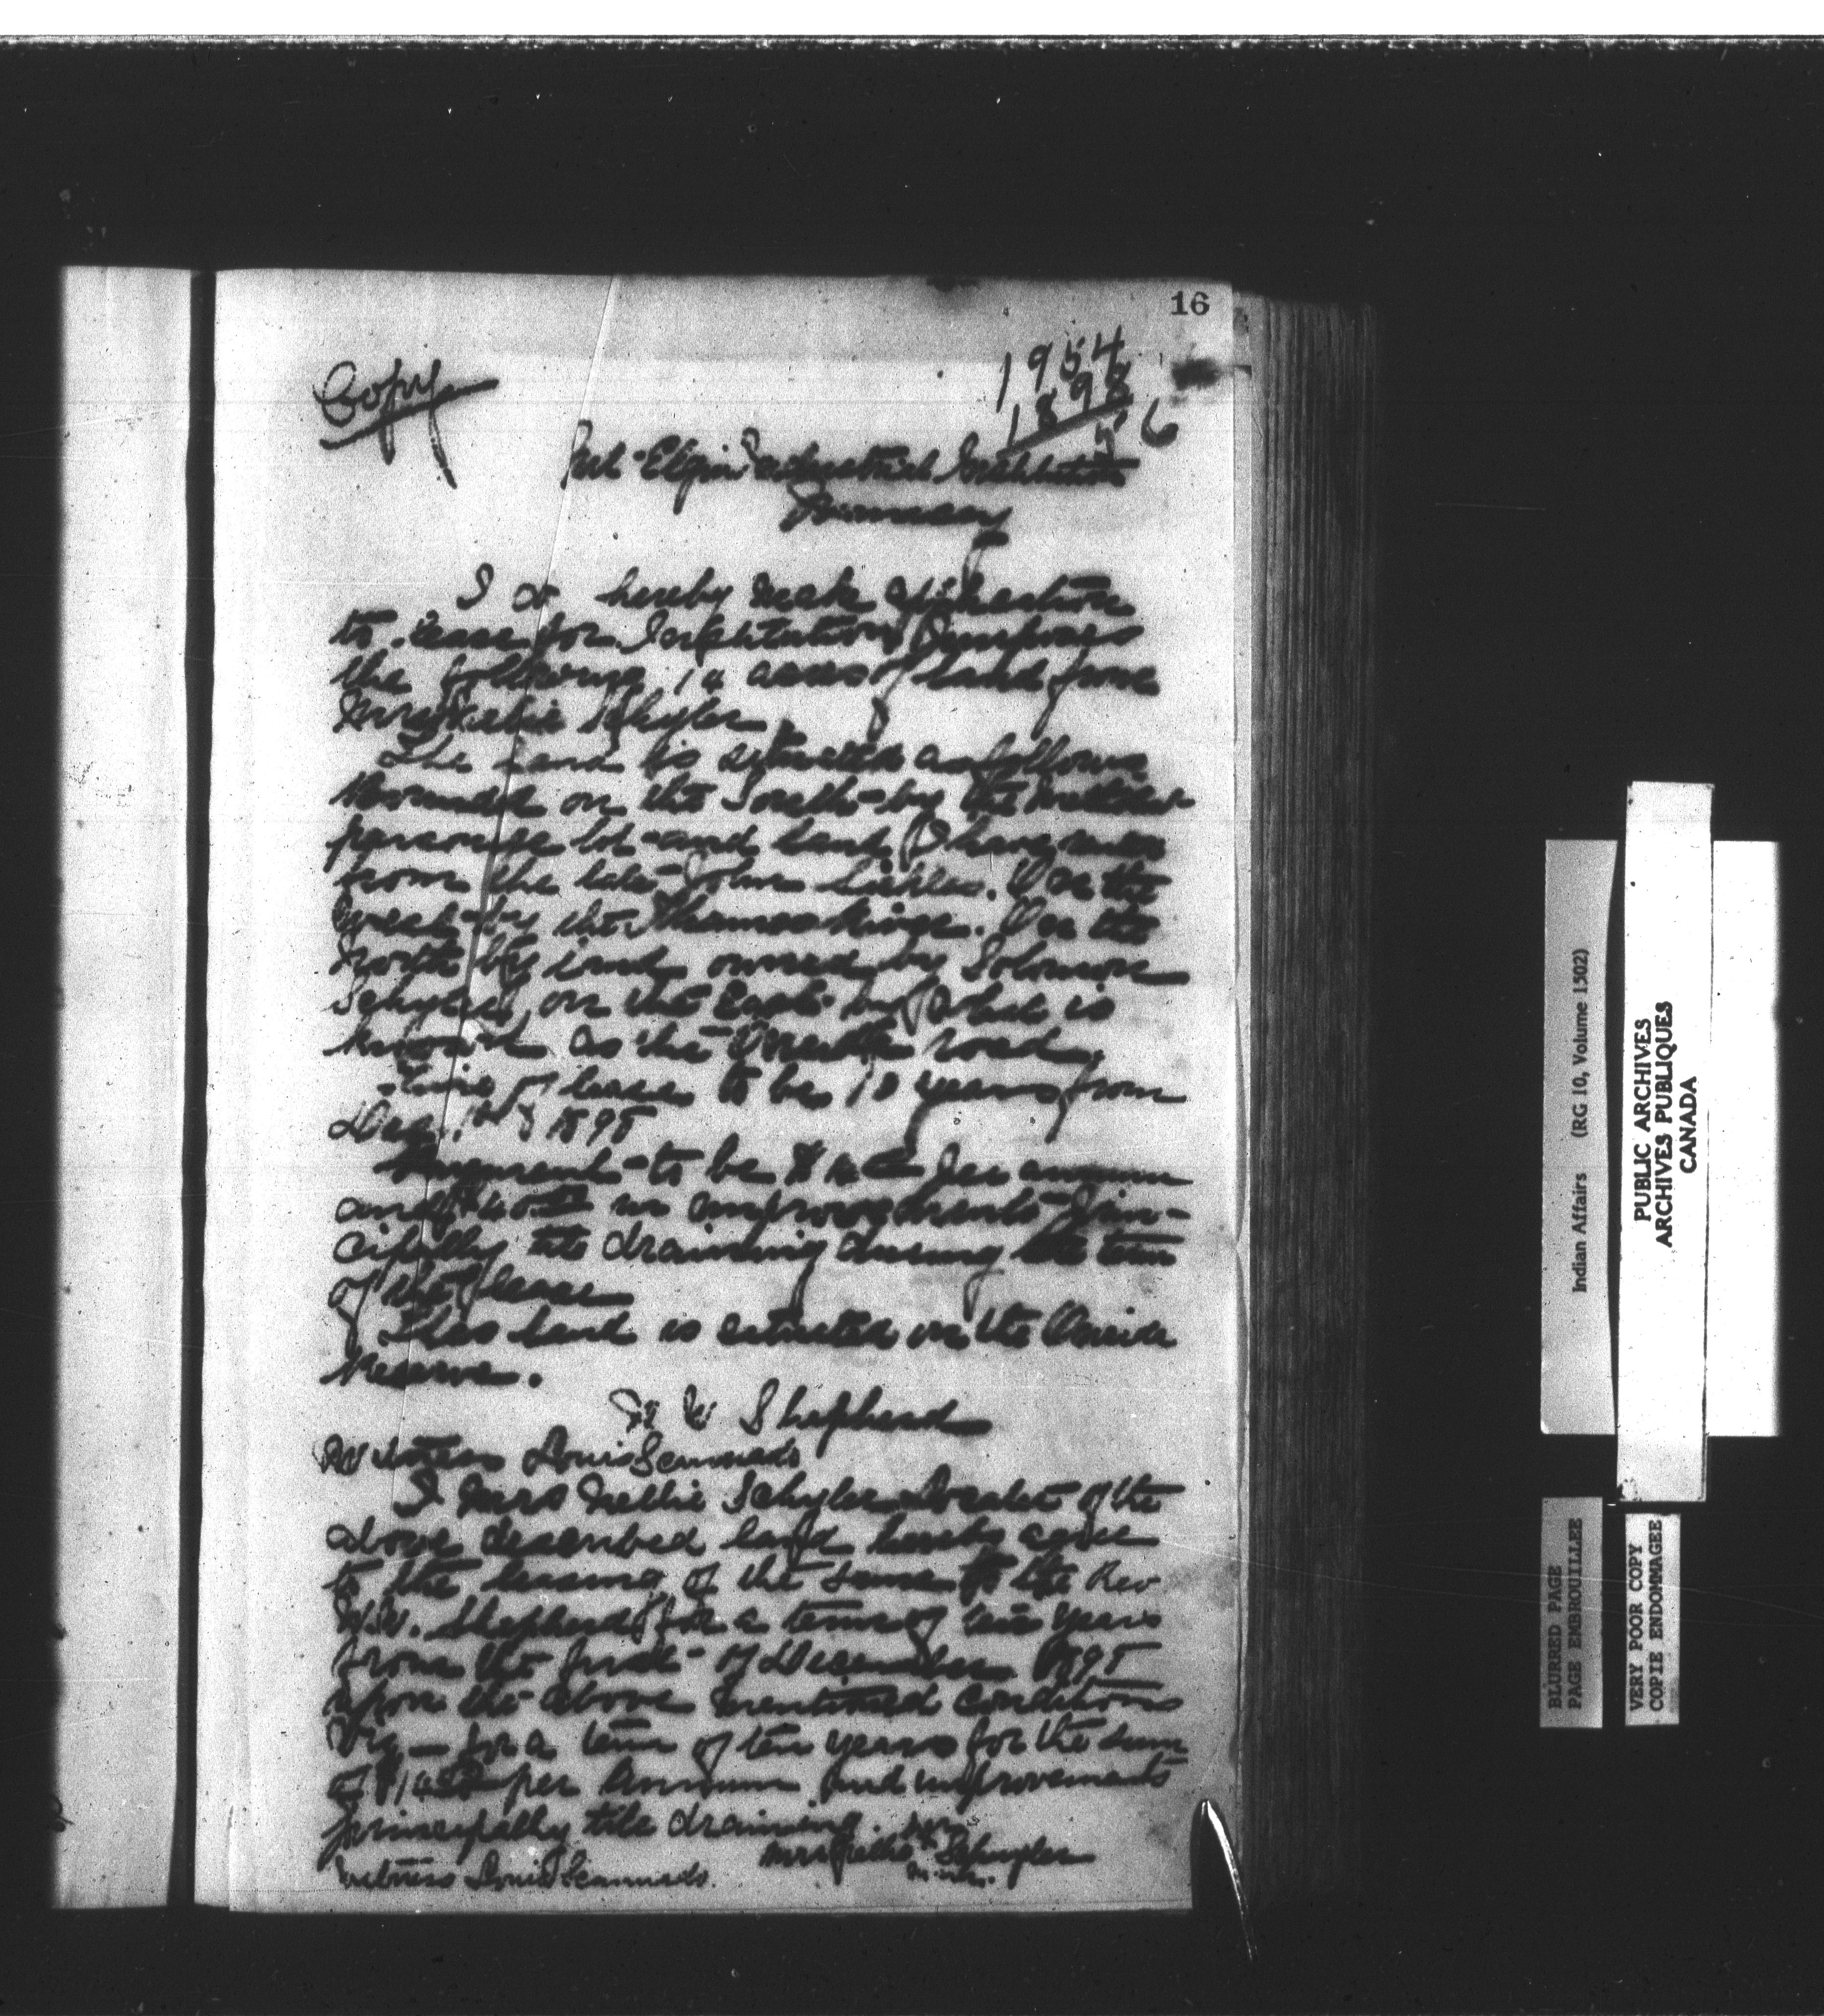 16
1954
1898
56
Copy
Mt Elgin Industrial Institution
Muncey
I do hereby make application
to lease for Institution Purposes
the following 14 acres of land from
Mrs Nellie Schyler
The land is situated as follows
Bounded on the South by the
parsonage lot and land I have
from the late John Sickles. On the
West by the Thames River. On the
North by land owned by Solomon
Schyler, on the East by what is
known as the Oneida road.
Time of lease to be 10 years from
Dec. 1st 1898
Payment to be $14 per annum
and $40 in improvements prin-
cipally tile draining during the term
of the lease
This land is situated on the Oneida
Reserve.
W W Shepherd
Witness Louis Scanado
I Mrs Nellie Schyler Locatee of the
above described land hereby agree
to the leasing of the same to the Rev
W.W. Shepherd for a term of ten years
from the first of December 1898
upon the above mentioned conditions
Viz — for a term of ten years for the sum
of $14 per annum and improvements
principally tile draining.
her
Mrs Nellie X Schuyler
mark.
Witness Louis Scanado.
Indian Affairs (RG 10, Volume 1502)
PUBLIC ARCHIVES
ARCHIVES PUBLIQUES
CANADA
BLURRED PAGE
PAGE EMBROUILLEE
VERY POOR COPY
COPIE ENDOMMAGEE